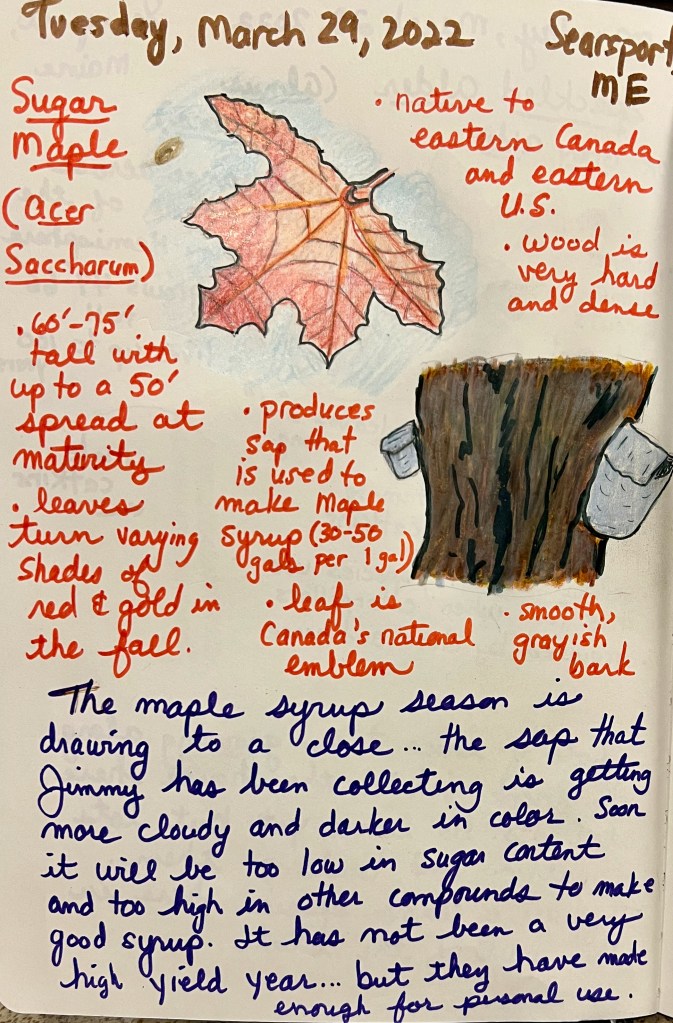 Tuesday, March 29, 2022
Searsport,
ME
Sugar
Maple
(Acer
Saccharum)
• 60'-75'
tall with
up to a 50'
spread at
maturity
• leaves
turn varying
shades of
red & gold in
the fall.
• native to
eastern Canada
and eastern
U.S.
• wood is
very hard
and dense
• produces
sap that
is used to
make maple
syrup (30-50
gals per 1 gal)
• leaf is
Canada's national
emblem
• smooth,
grayish
bark
The maple syrup season is
drawing to a close... the sap that
Jimmy has been collecting is getting
more cloudy and darker in color. Soon
it will be too low in sugar content
and too high in other compounds to make
good syrup. It has not been a very
high yield year... but they have made
enough for personal use.